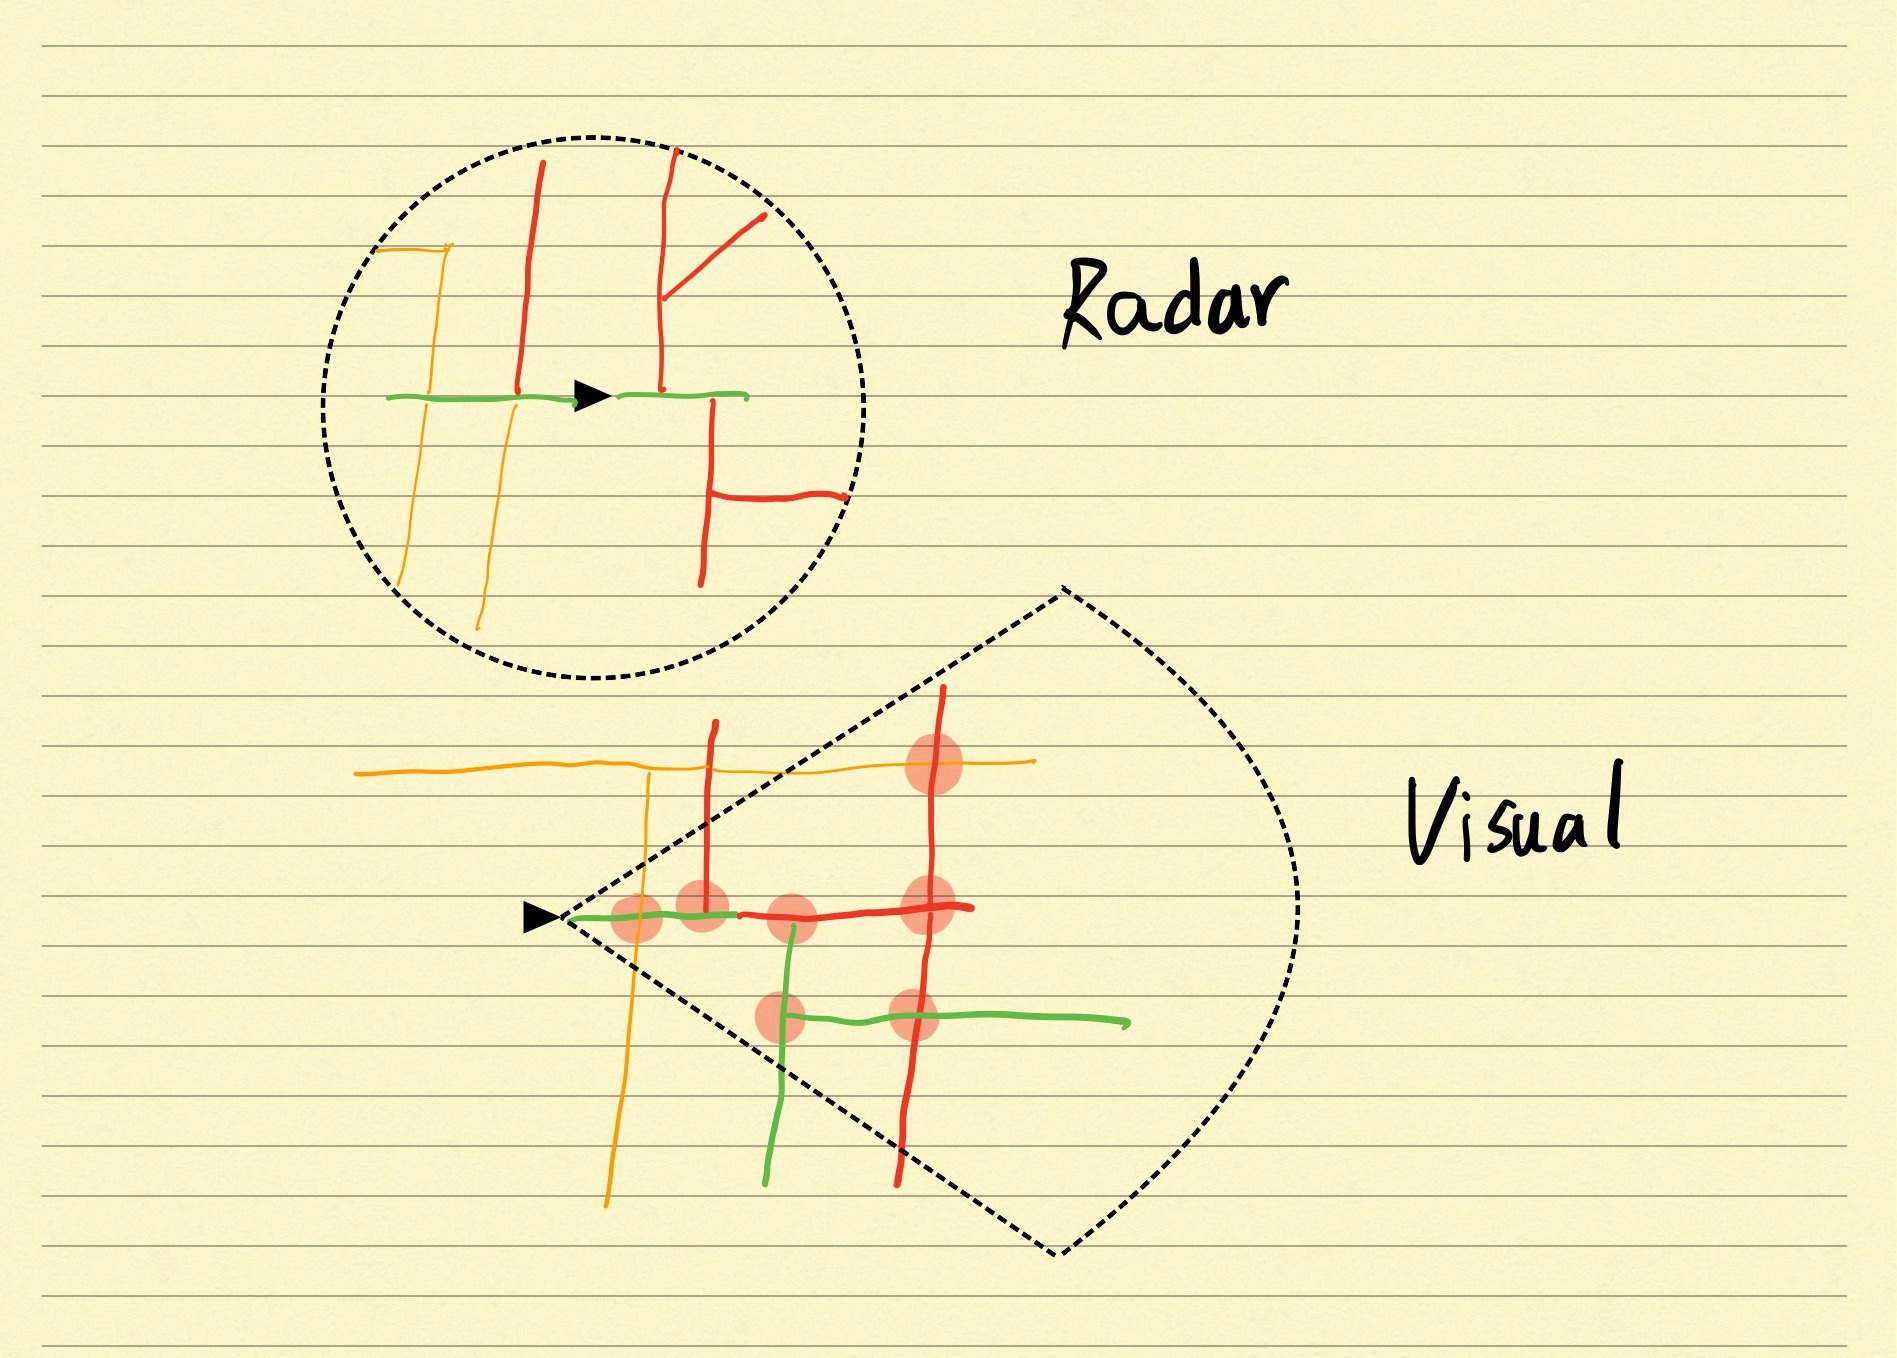 Radar
Visual